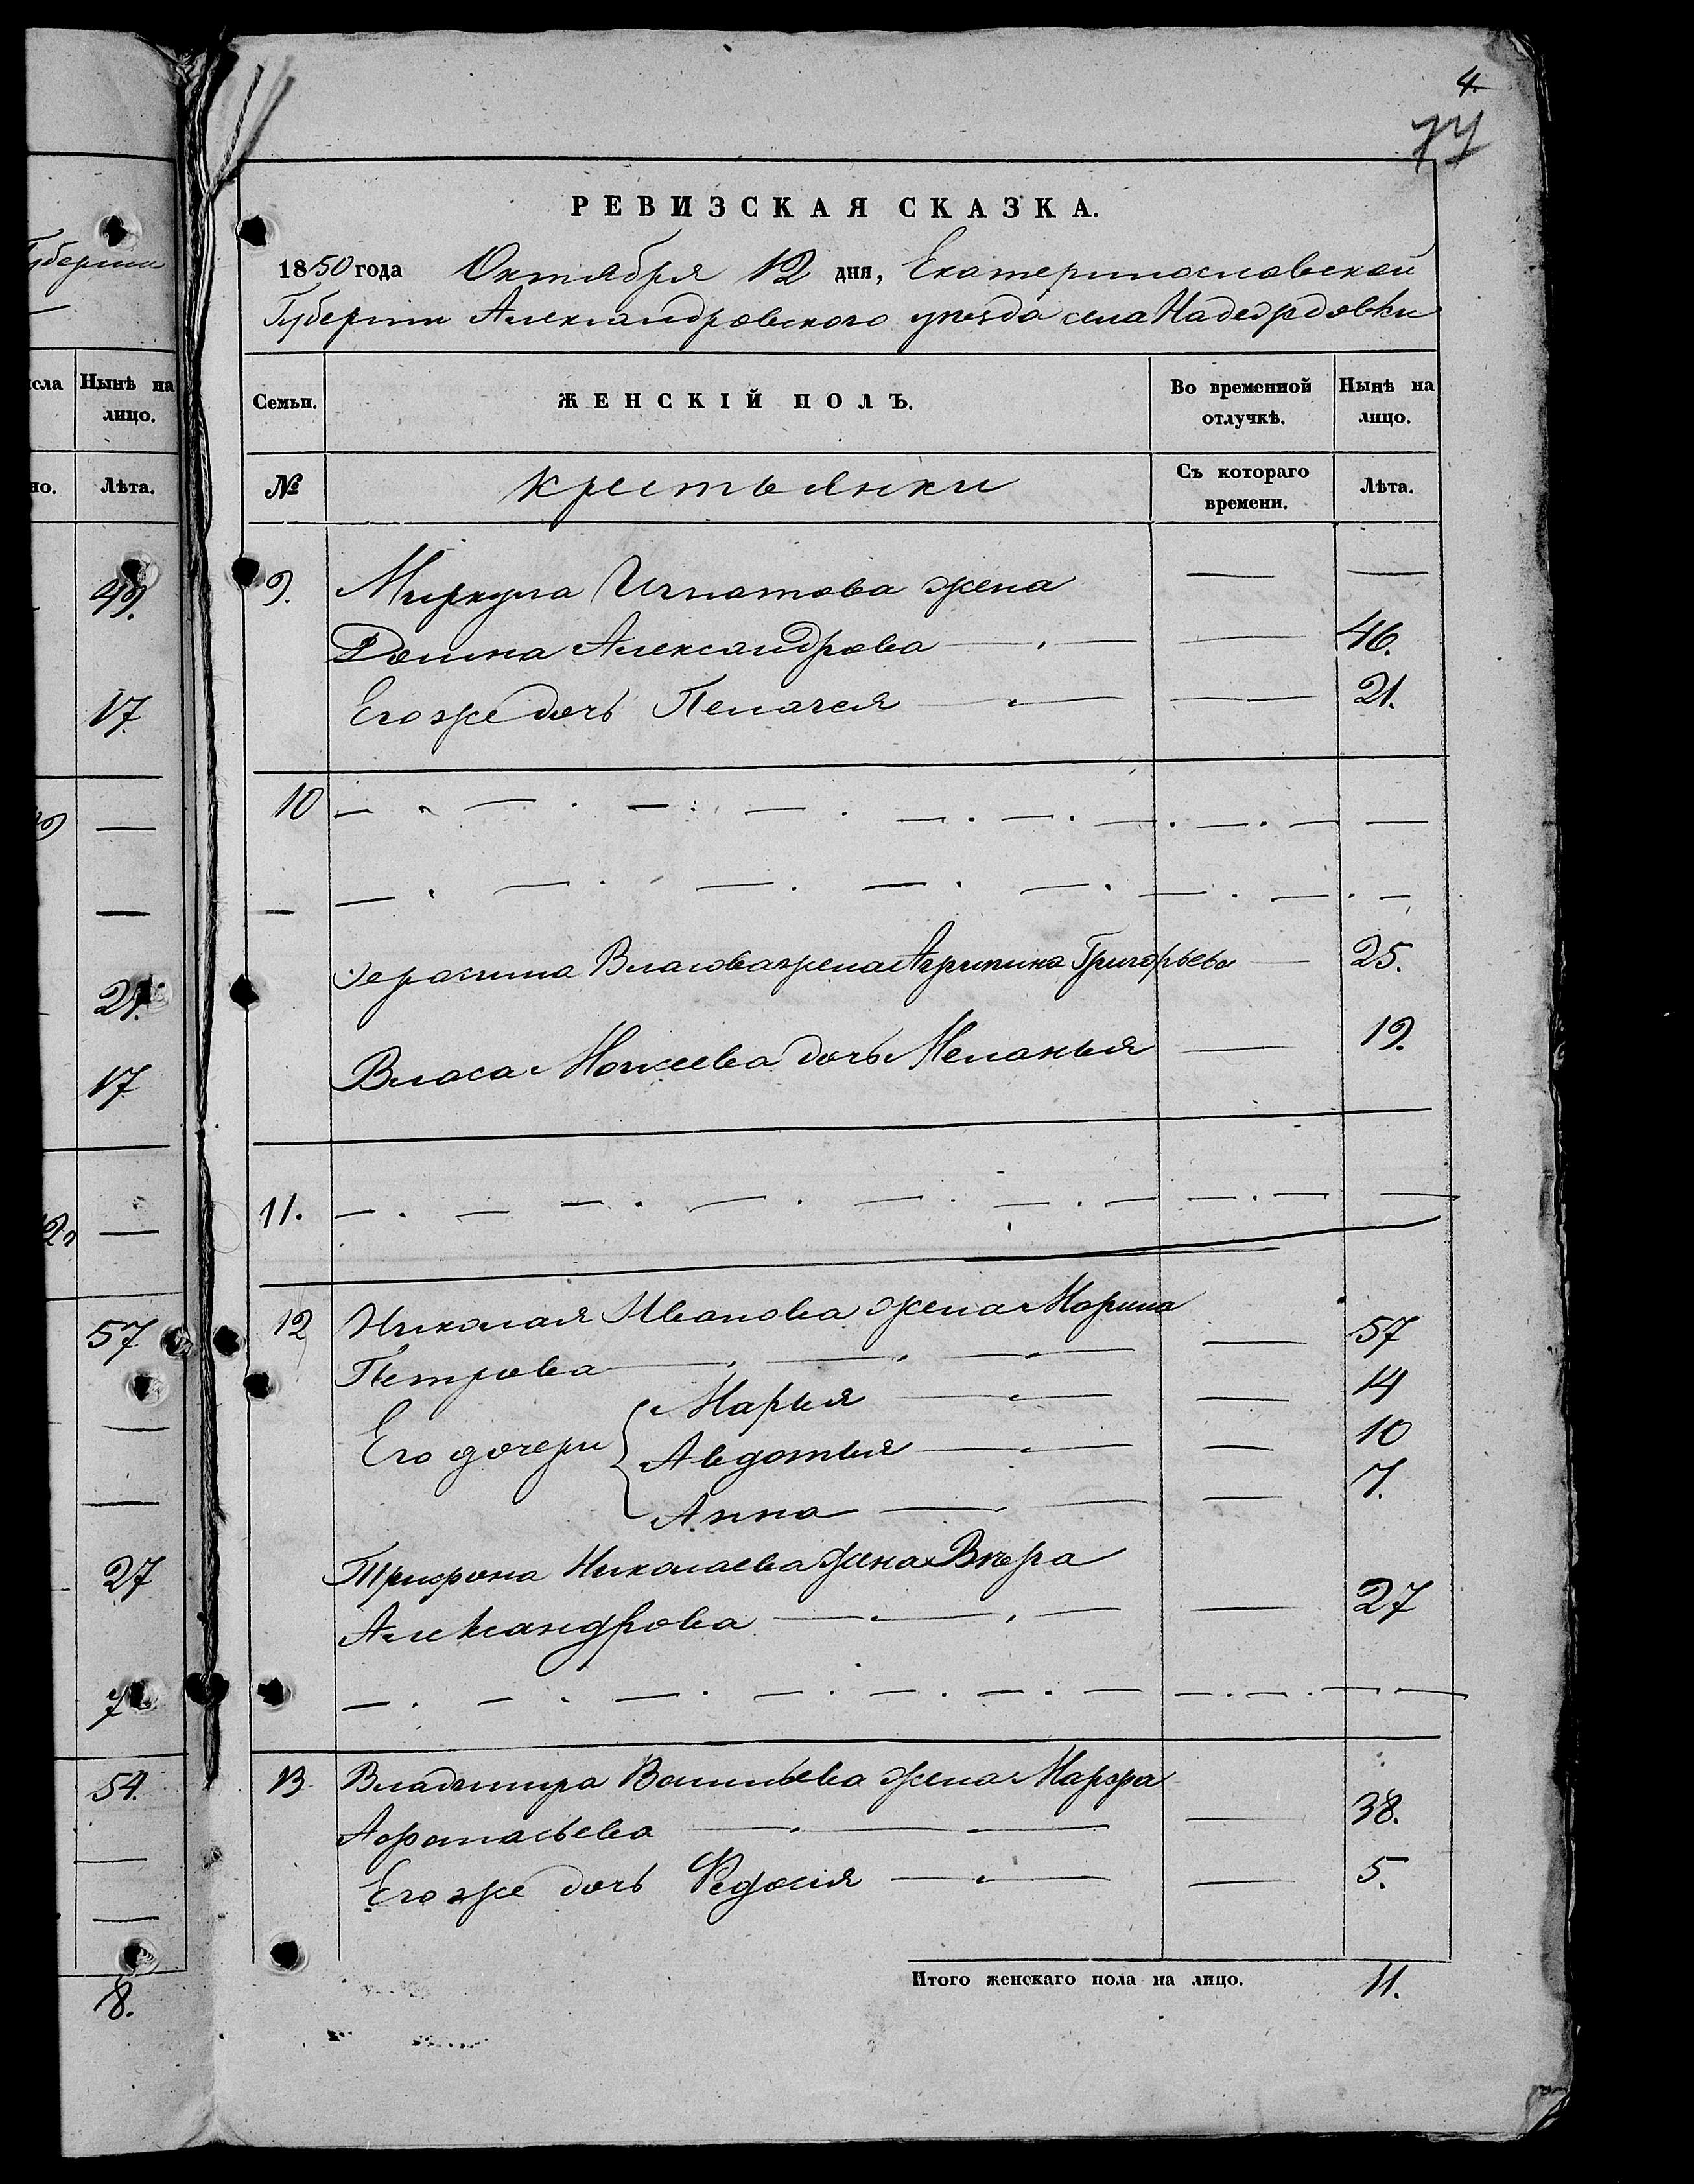 4.
77
Губерніи
сла
Нынѣ на
лицо.
но.
Лѣта.
49.
17.
—
—
21.
17
—
57
—
—
27
7
54.
—
—
8.
РЕВИЗСКАЯ СКАЗКА.
1850 года Октября 12 дня, Екатеринославской
Губерніи Александровскаго уѣзда села Надеждовки
Семьи. ЖЕНСКІЙ ПОЛЪ. Во временной отлучкѣ. Нынѣ на лицо.
№ крестьянки Съ котораго времени. Лѣта.
9. Меркула Игнатова жена — —
Домна Александрова — — 46.
Его же дочь Пелагея — — 21.
10 — — —
— — — —
Герасима Власова жена Агрипина Григорьева — 25.
Власа Моисеева дочь Меланья — 19.
11. — — —
12 Николая Иванова жена Марина
Петрова — — 57
Его дочери { Марья — — 14
Авдотья — — 10
Анна — — 7.
Трифона Николаева жена Вѣра
Александрова — — 27
— — —
13 Владимира Васильева жена Марфа
Афанасьева — — 38.
Его же дочь Федосія — — 5.
Итого женскаго пола на лицо. 11.